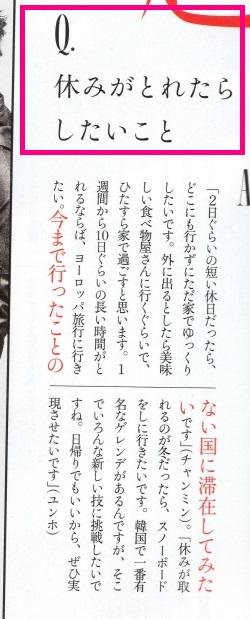 Q.
休みがとれたら
したいこと
「2日ぐらいの短い休日だったら、
どこにも行かずにただ家でゆっくり
したいです。外に出るとしたら美味
しい食べ物屋さんに行くぐらいで、
ひたすら家で過ごすと思います。1
週間から10日ぐらいの長い時間がと
れるならば、ヨーロッパ旅行に行き
たい。今まで行ったことの
ない国に滞在してみた
いです」(チャンミン)。「休みが取
れるのが冬だったら、スノーボード
をしに行きたいです。韓国で一番有
名なゲレンデがあるんですが、そこ
でいろんな新しい技に挑戦したいで
すね。日帰りでもいいから、ぜひ実
現させたいです」(ユンホ)